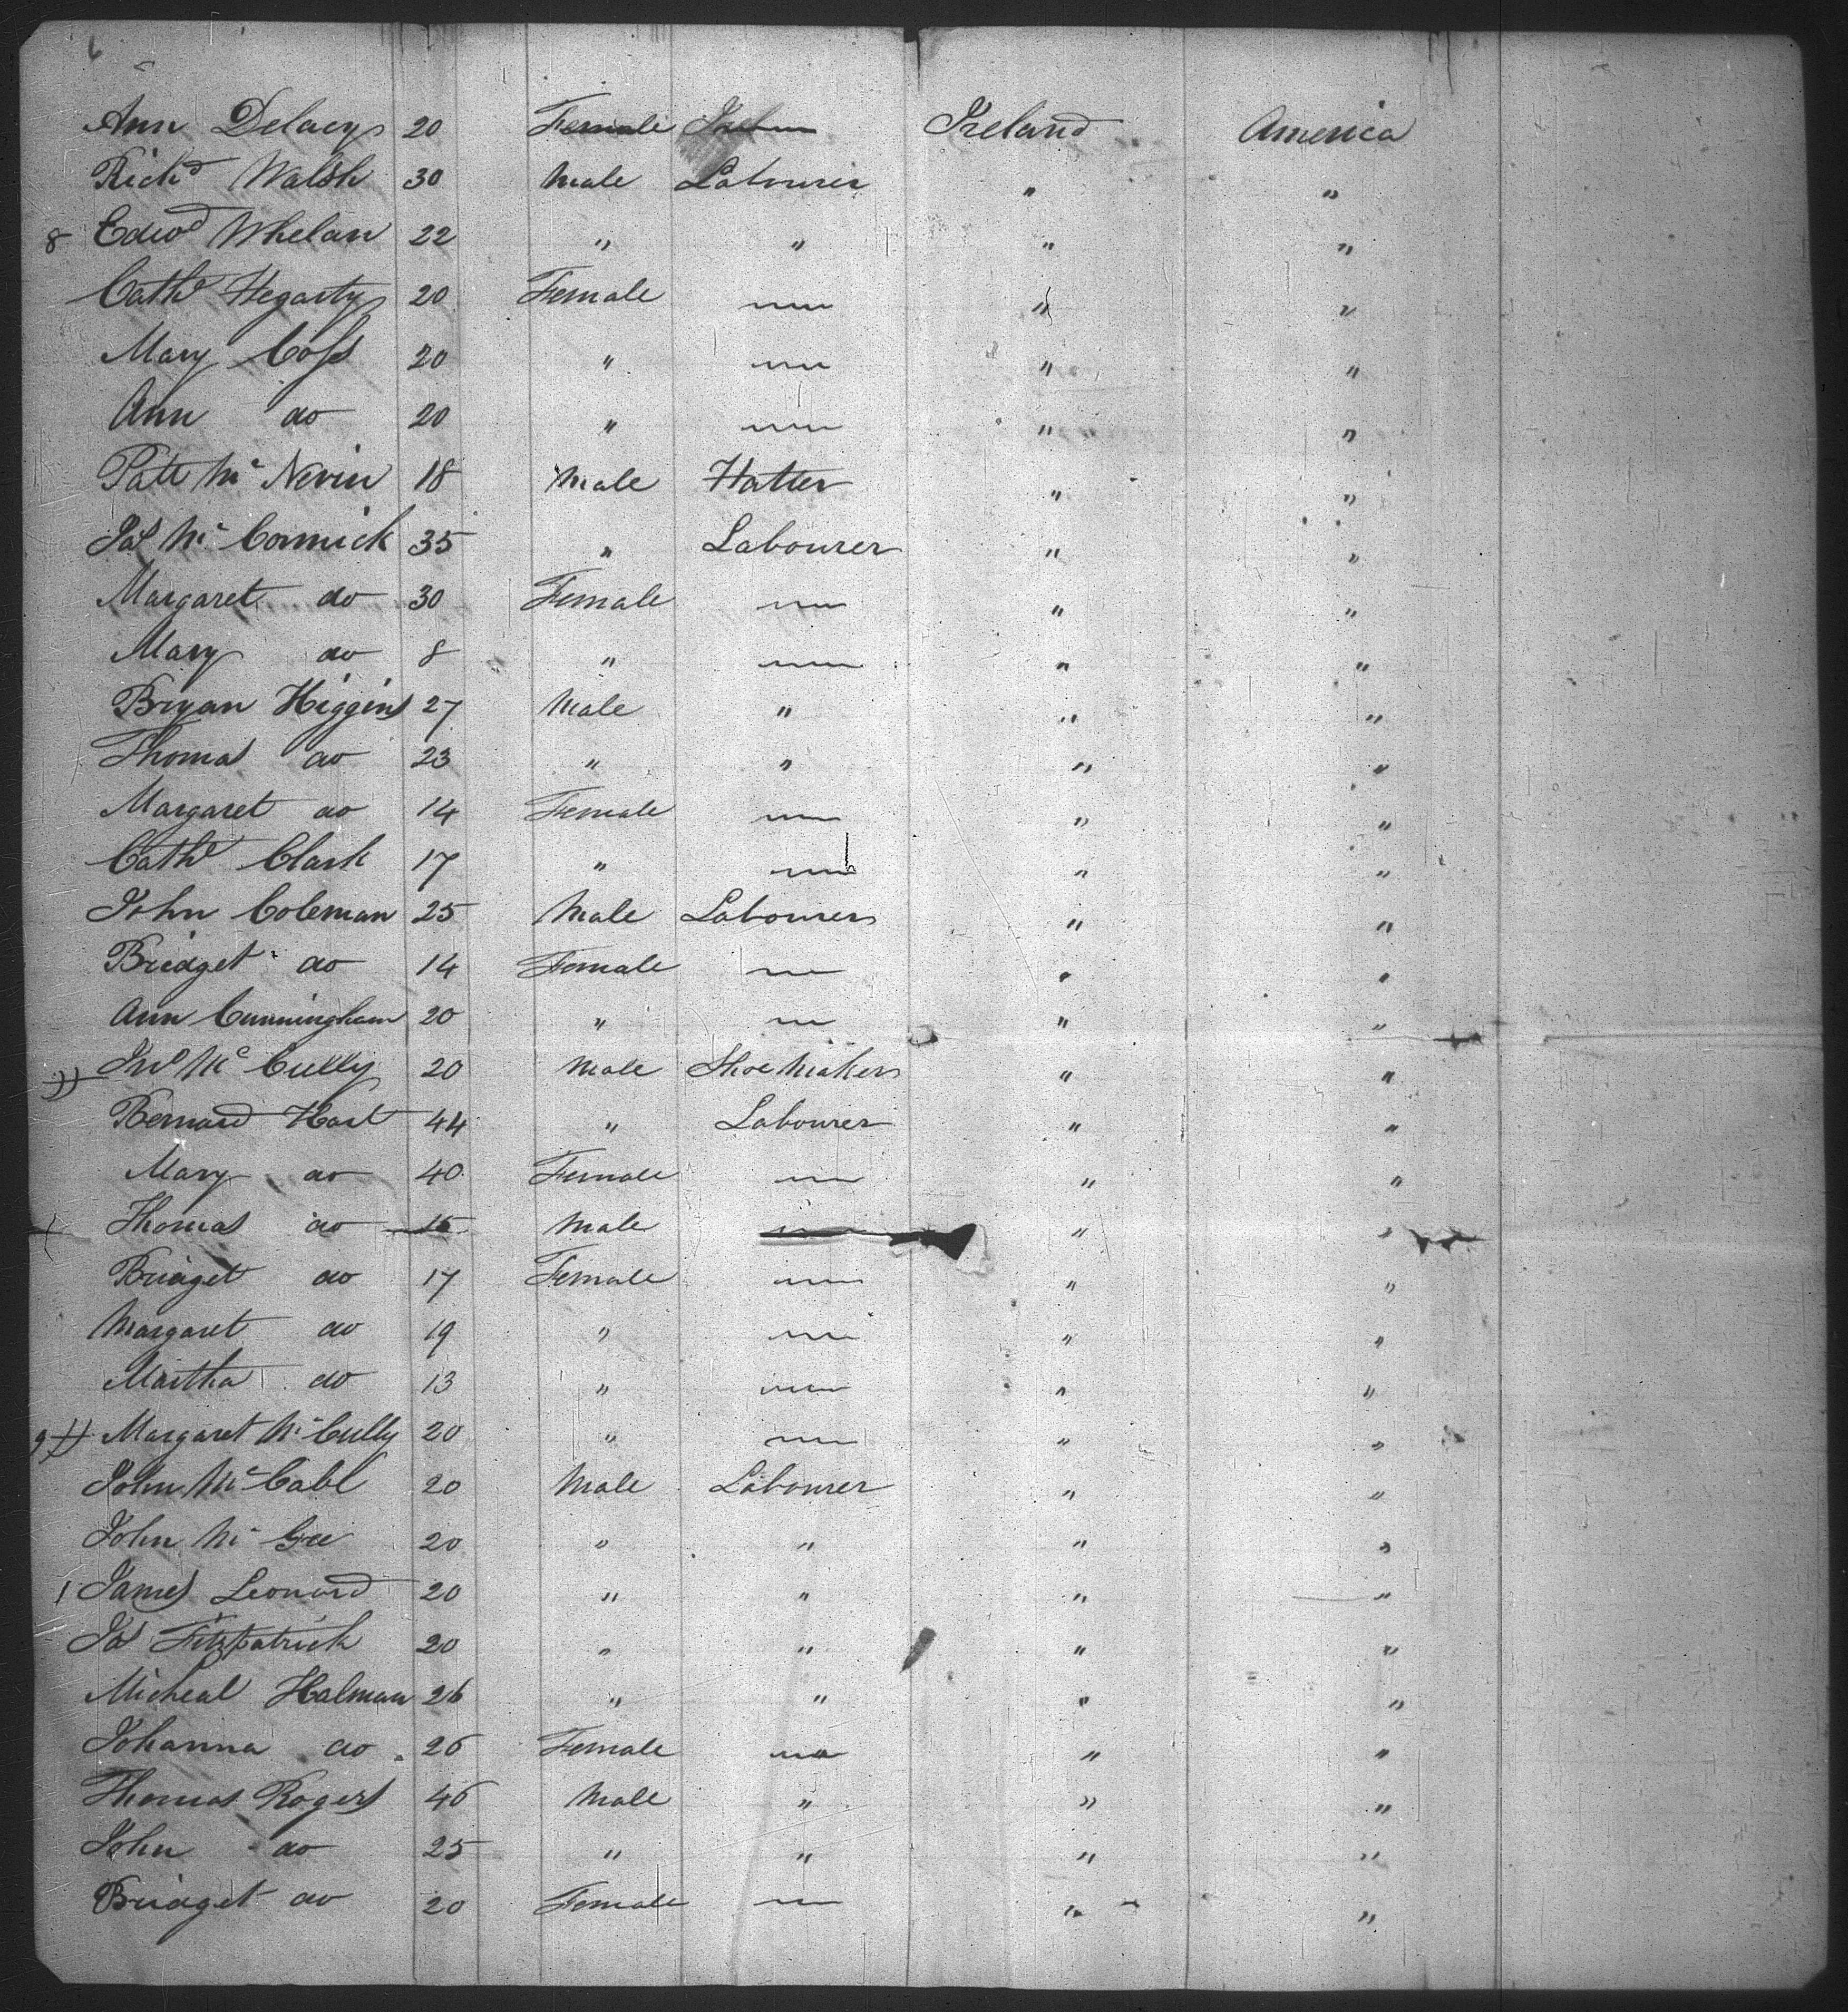 6
Ann Delacy 20 Female Ireland America
Richd Walsh 30 Male Labourer " "
8 Edwd Whelan 22 " " " "
Cathe Hegarty 20 Female — " "
Mary Coss 20 " — " "
Ann do 20 " — " "
Patt Mc Nevin 18 Male Hatter " "
Jas Mc Cormick 35 " Labourer " "
Margaret do 30 Female — " "
Mary do 8 " — " "
Bryan Higgins 27 Male " " "
Thomas do 23 " " " "
Margaret do 14 Female — " "
Cathe Clark 17 " — " "
John Coleman 25 Male Labourer " "
Bridget do 14 Female — " "
Ann Cunningham 20 " — " "
Jno Mc Cully 20 Male Shoe Maker " "
Bernard Hart 44 " Labourer " "
Mary do 40 Female — " "
Thomas do 15 Male — " "
Bridget do 17 Female — " "
Margaret do 19 " — " "
Martha do 13 " — " "
9 Margaret Mc Cully 20 " — " "
John Mc Cabe 20 Male Labourer " "
John Mc Gee 20 " " " "
1 James Leonard 20 " " " "
Jas Fitzpatrick 20 " " " "
Micheal Halman 26 " " " "
Johanna do 26 Female — " "
Thomas Rogers 46 Male " " "
John do 25 " " " "
Bridget do 20 Female — " "